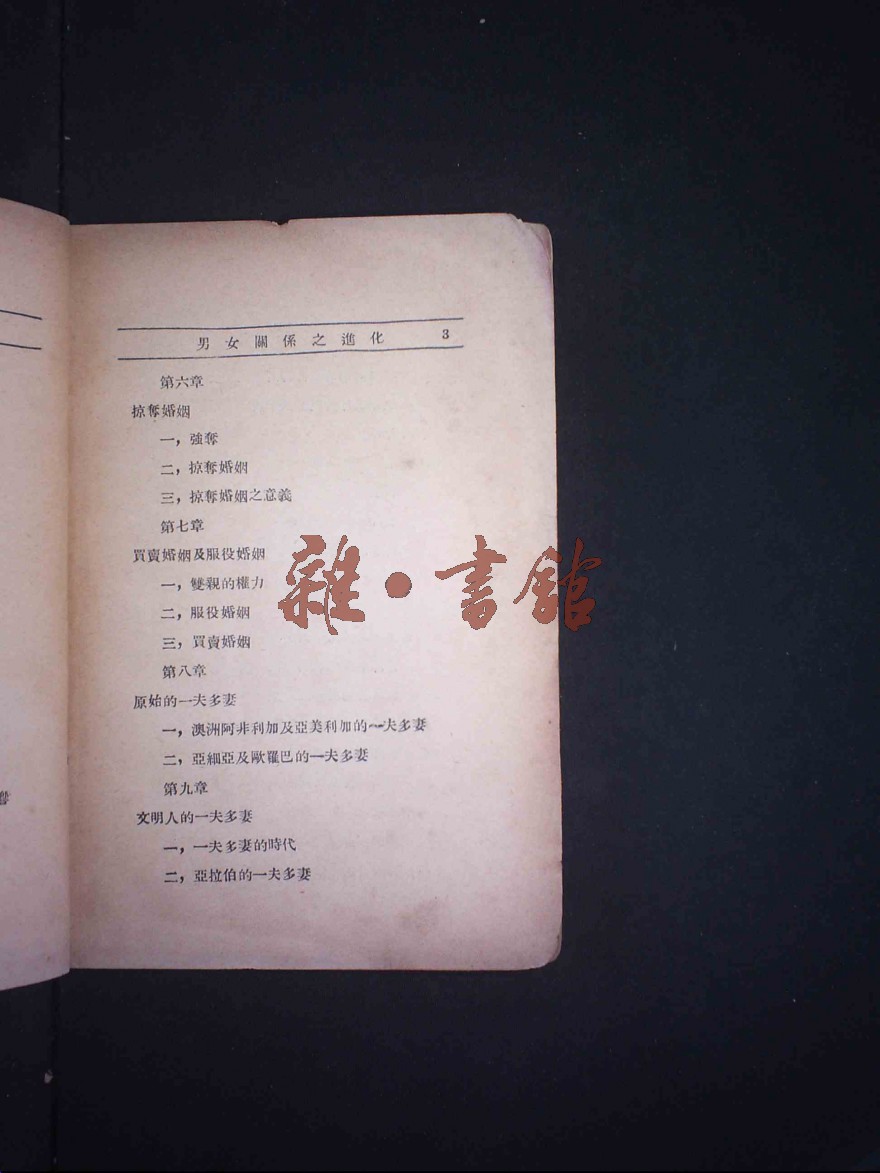 男女關係之進化 3
第六章
掠奪婚姻
一，強奪
二，掠奪婚姻
三，掠奪婚姻之意義
第七章
買賣婚姻及服役婚姻
一，雙親的權力
二，服役婚姻
三，買賣婚姻
第八章
原始的一夫多妻
一，澳洲阿非利加及亞美利加的一夫多妻
二，亞細亞及歐羅巴的一夫多妻
第九章
文明人的一夫多妻
一，一夫多妻的時代
二，亞拉伯的一夫多妻
雜•書館